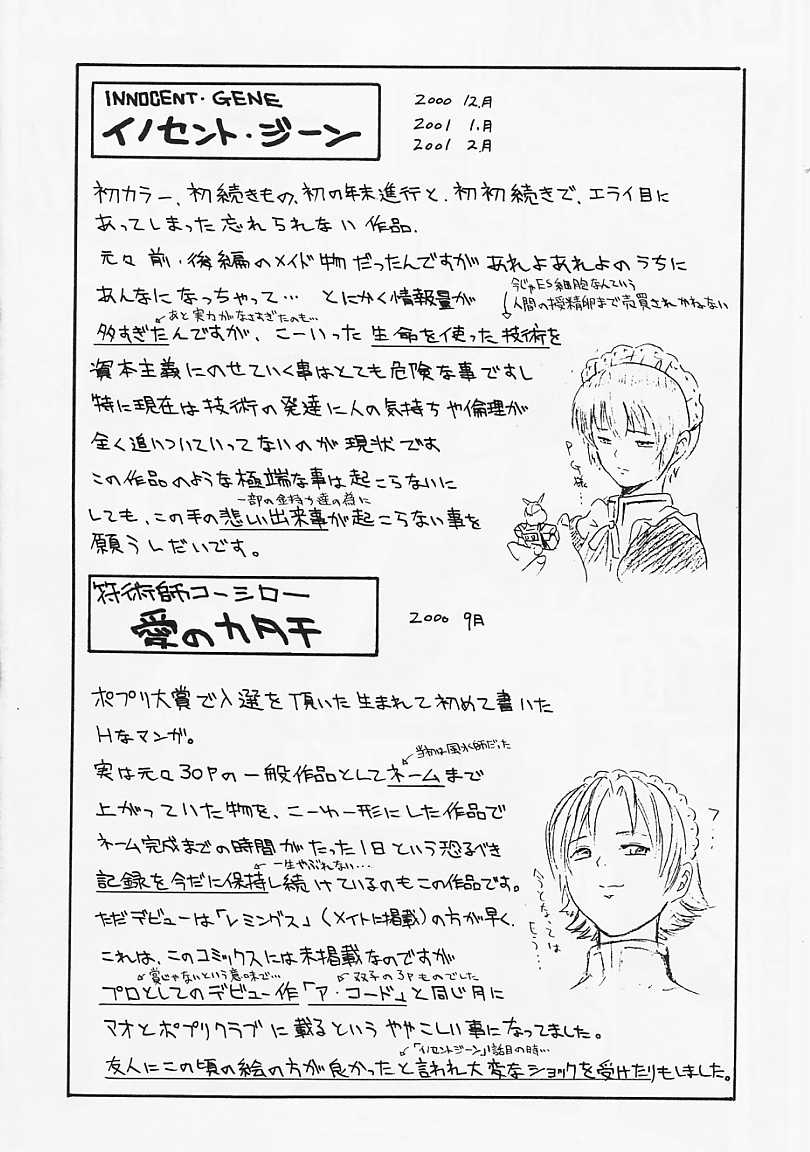 INNOCENT・GENE
イノセント・ジーン
2000 12月
2001 1月
2001 2月
初カラー、初続きもの、初の年末進行と、初初続きで、エライ目に
あってしまった忘れられない作品.
元々前・後編のメイド物だったんですがあれよあれよのうちに
あんなになっちゃって… とにかく情報量が
今じゃES細胞なんていう
人間の授精卵まで売買されかねない
あと実力がなさすぎたのも…
多すぎたんですが、こーいった生命を使った技術を
資本主義にのせていく事はとても危険な事ですし
特に現在は技術の発達に人の気持ちや倫理が
全く追いついていってないのが現状です
この作品のような極端な事は起こらないに
一部の金持ち達の為に
しても、この手の悲しい出来事が起こらない事を
願うしだいです。
P.G様…
符術師コーシロー
愛のカタチ
2000 9月
ポプリ大賞で入選を頂いた生まれて初めて書いた
Hなマンガ。
当初は風水師だった
実は元々30Pの一般作品としてネームまで
上がっていた物を、こーゆー形にした作品で
ネーム完成までの時間がたった1日という恐るべき
一生やぶれない…
記録を今だに保持し続けているのもこの作品です。
ただデビューは「レミングス」(メイトに掲載)の方が早く、
これは、このコミックスには未掲載なのですが
賞じゃないという意味で…
双子の3Pものでした
プロとしてのデビュー作「ア・コード」と同じ月に
マオとポプリクラブに載るというややこしい事になってました。
「イノセントジーン」1話目の時…
友人にこの頃の絵の方が良かったと言われ大変なショックを受けたりもしました。
フ…
今となっては